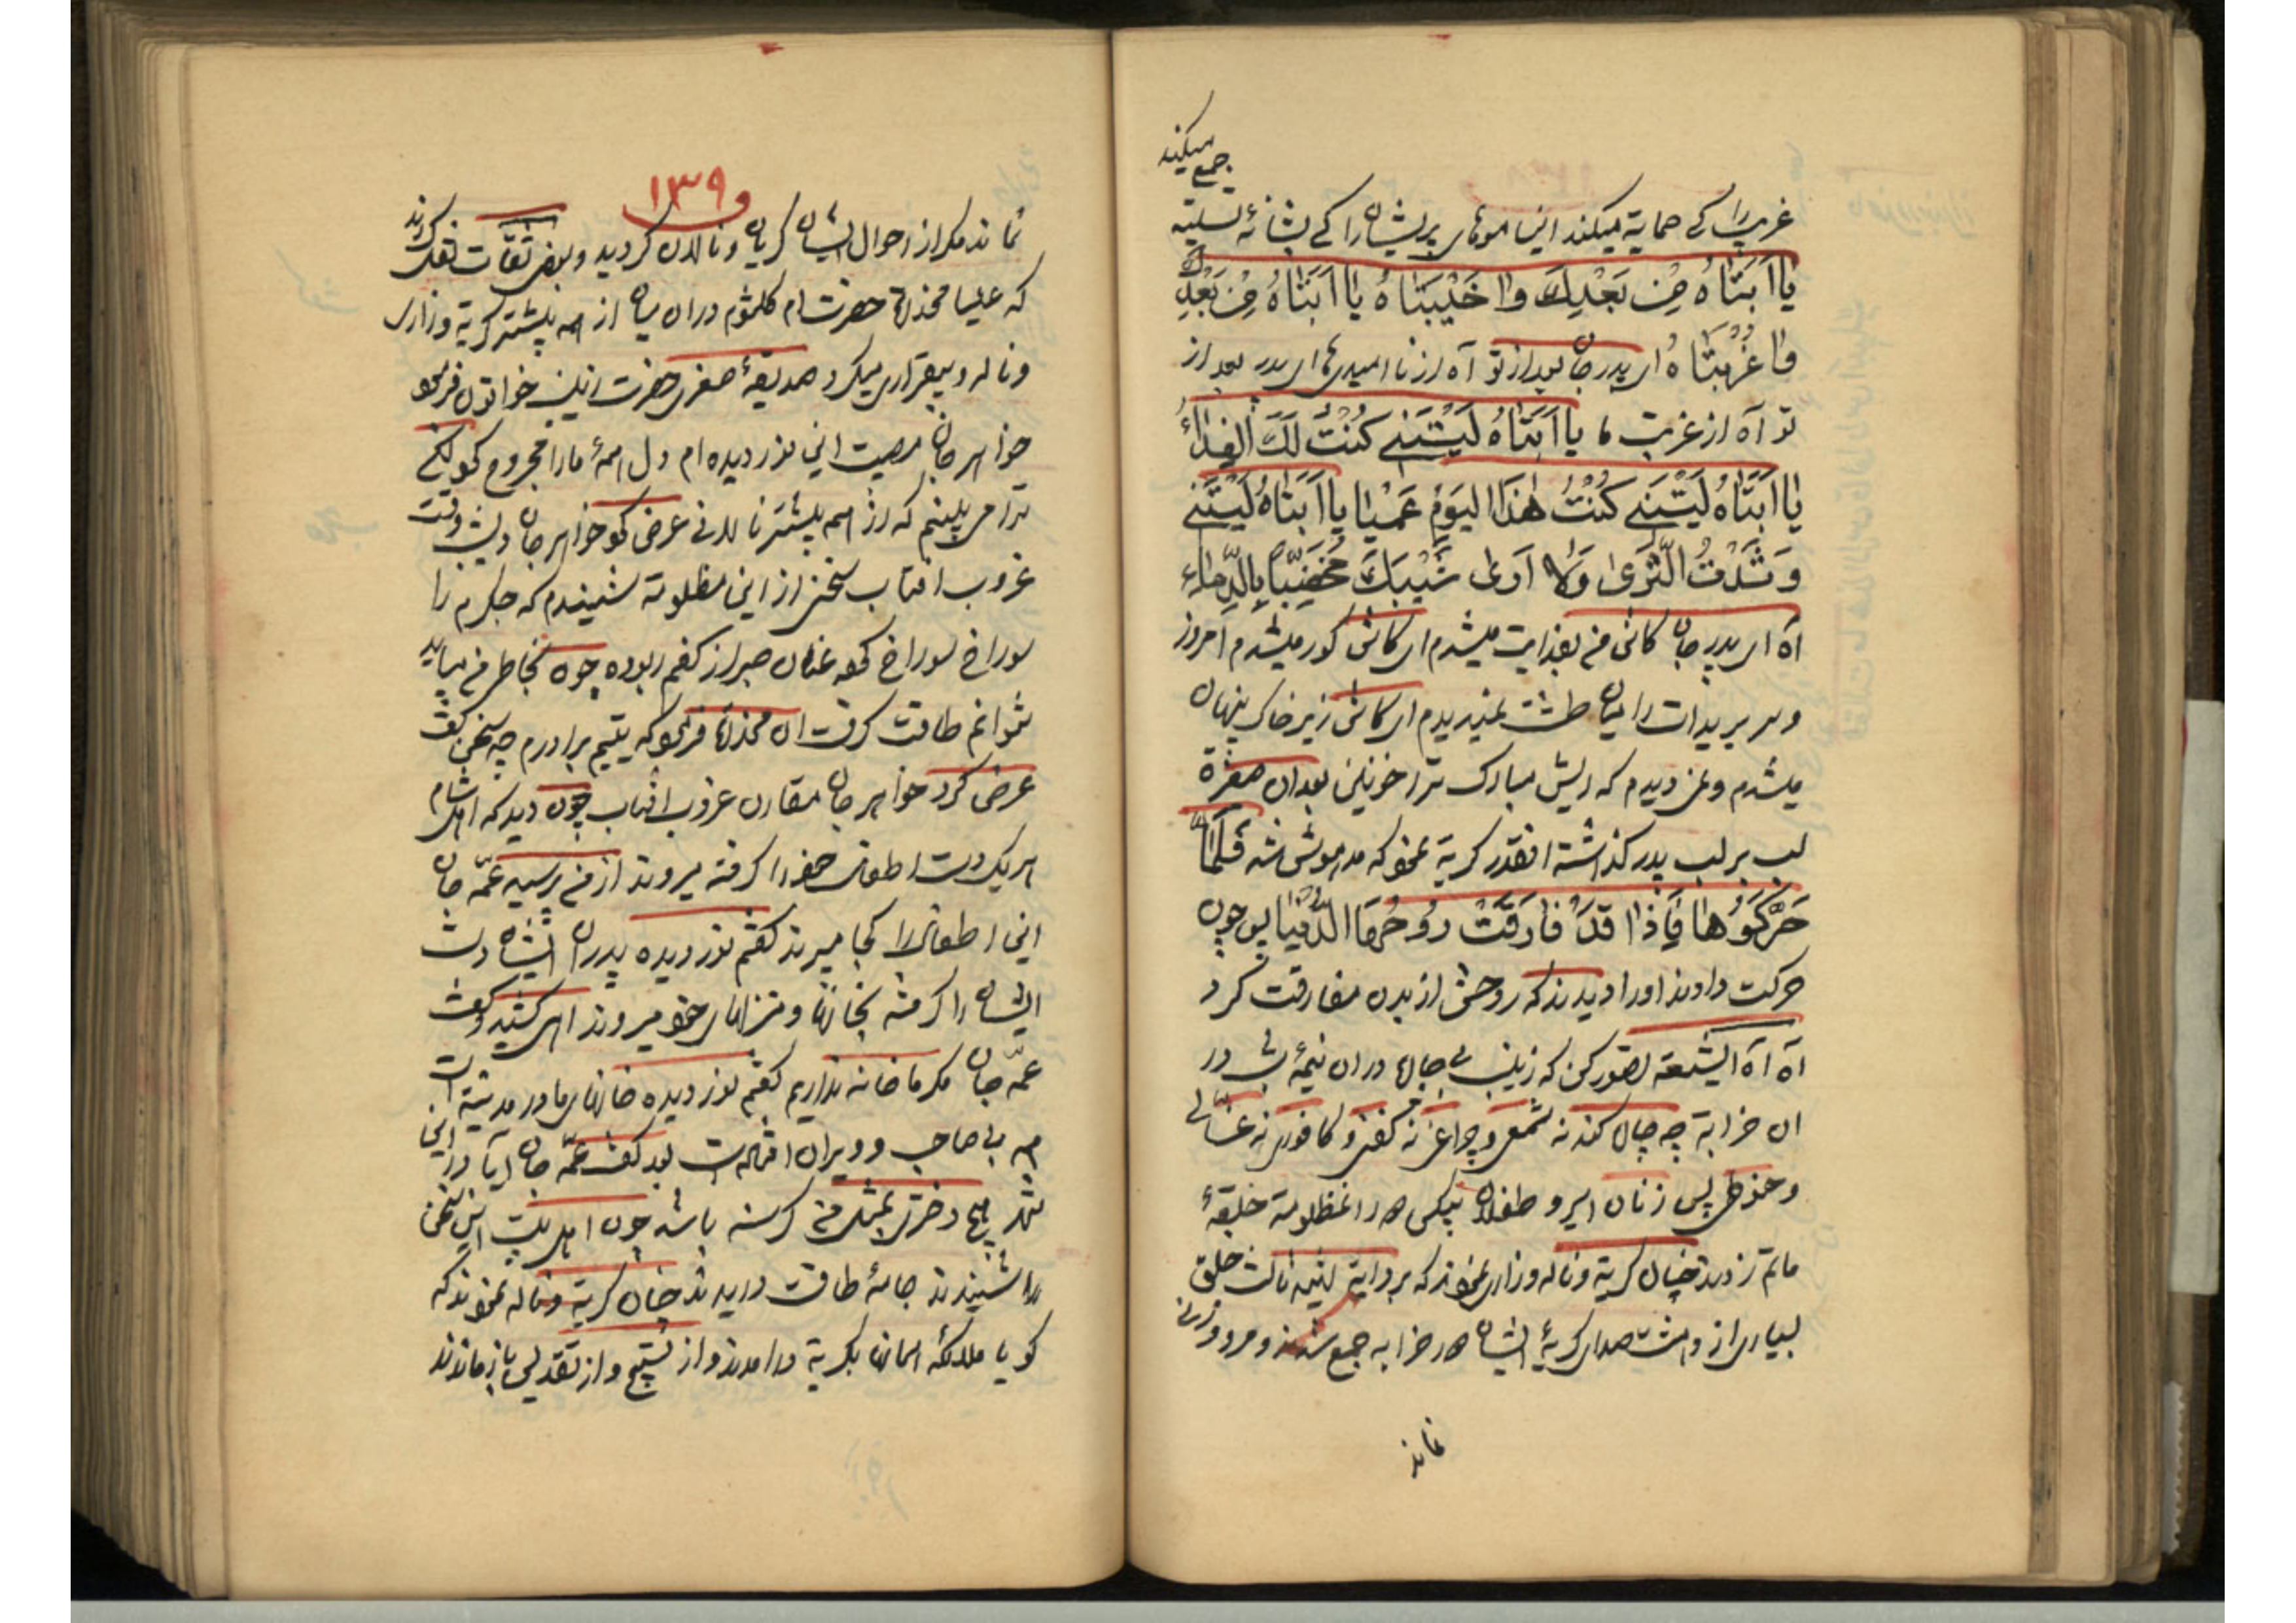 جمع میکند
غریبان را کے حمایة میکند این موهای پریشان را کے بشانهٔ تسلیة
یا اَبَتاهُ مِن بَعْدِكَ وا خَیْبَتاهُ یا اَبَتاهُ مِن بَعْدِكَ
وا غُرْبَتاهُ ای پدر جان بعد از تو آه از نا امیدی ما ای پدر بعد از
تو آه از غربت ما یا اَبَتاهُ لَیْتَنی كُنْتُ لَكَ الفِداءُ
یا اَبَتاهُ لَیْتَنی كُنْتُ هٰذَا الیَوْمِ عَمْیا یا اَبَتاهُ لَیْتَنی
وَسَّدْتُ الثَّرىٰ وَلا اَرىٰ شَیْبَكَ مُخَضَّباً بِالدِّماء
آه ای پدر جان کاش من بفدایت میشدم ای کاش کور میشدم امروز
و سر بریدات را میان طشت نمیدیدم ای کاش زیر خاک پنهان
میشدم و نمیدیدم که ریش مبارک ترا خونین بعد ان صغیرة
لب بر لب پدر گذاشته انقدر گریة نمود که مدهوش شد فَلَمّا
حَرَّكُوْها فَاِذا قَدْ فارَقَتْ رُوحُهَا الدُّنْیا پس چون
حرکت دادند اورا دیدند که روحش از بدن مفارقت کرد
آه آه ایشیعة تصور کن که زینب بی چاره دران نیمهٔ شب در
ان خرابة چه چاره کند نه شمعی و چراغی نه کفنی و کافوری نه غسّالی
و حنوطی پس زنان اسیر و طفلان بیکس در ان مظلومة حلقهٔ
ماتم زدند چنان گریة و ناله و زاری نمودند که بروایة
بسیاری از دهشت صدای گریهٔ ایشان در خرابه جمع شدند و مرد و زنی
نماند
۱۳۹
نماند مگر از احوال ایشان گریان و نالان گردید و بعضی ثقات نقل کردند
که علیا مخدرة حضرت ام کلثوم دران میان از همه بیشتر گریة و زاری
و ناله و بیقراری میکرد صدیقهٔ صغری حضرت زینب خواتون فرمود
خواهر جان مصیبت این نور دیده ام دل همهٔ مارا مجروح کرد لکن
ترا می بینم که از همه بیشتر نالانی عرض کرد خواهر جان دیشب وقت
غروب افتاب سخنی از این مظلومة شنیدم که جگرم را
سوراخ سوراخ کرده عنان صبر از کفم ربوده چون بخاطر من میاید
نتوانم طاقت گرفت ان مخدرة فرمود که یتیم برادرم چه سخن گفت
عرض کرد خواهر جان مقارن غروب افتاب چون دید که اهل شام
هر یک دست اطفال خود را گرفته میروند از من پرسید عمّه جان
این اطفال را کجا میبرند گفتم نور دیده پدران ایشان دست
ایشان را گرفته بخانها و منزلهای خود میروند اهی کشید و گفت
عمّه جان مگر ما خانه نداریم گفتم نور دیده خانهای ما در مدینه است
همه بی صاحب و ویران افتاده است بعد گفت عمّه جان ایا در این
شهر هیچ دختری بمثل من گرسنه باشد چون اهل بیت این سخن
را شنیدند جامهٔ طاقت دریدند چنان گریة و ناله نمودند که
گویا ملائکهٔ اسمان بگریة درامدند و از تسبیح و از تقدیس باز ماندند